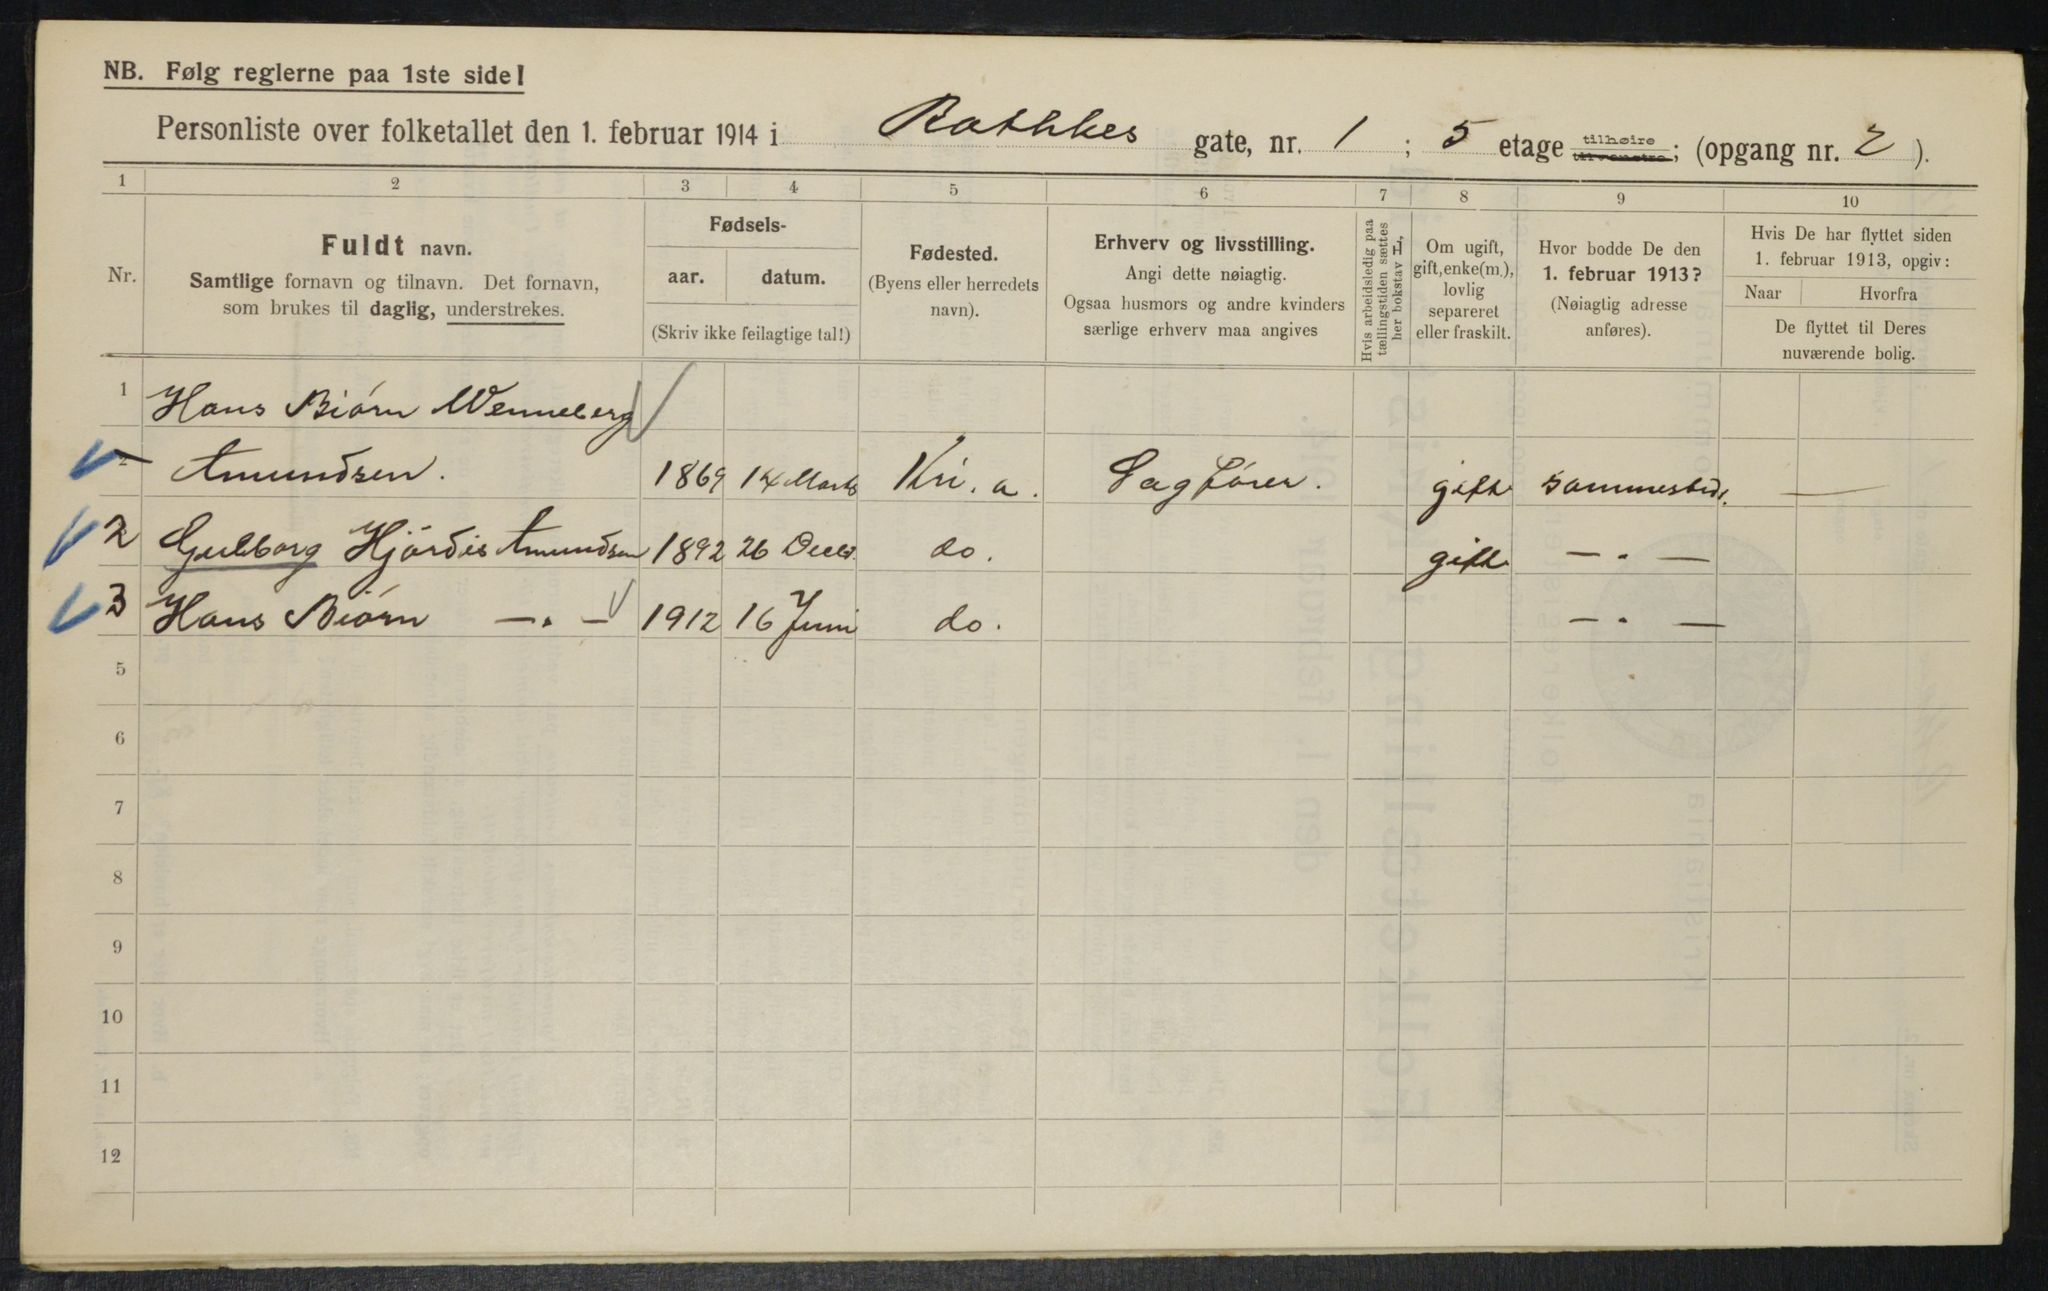 NB. Følg reglerne paa 1ste side!
Personliste over folketallet den 1. februar 1914 i Rathkes gate, nr. 1 ; 5 etage tilhøire tilvenstre; (opgang nr. 2 ).
1 2 3 4 5 6 7 8 9 10
Nr.
Fuldt navn.
Samtlige fornavn og tilnavn. Det fornavn,
som brukes til daglig, understrekes.
Fødsels-
aar. datum.
(Skriv ikke feilagtige tal!)
Fødested.
(Byens eller herredets
navn).
Erhverv og livsstilling.
Angi dette nøiagtig.
Ogsaa husmors og andre kvinders
særlige erhverv maa angives
Hvis arbeidsledig paa
tællingstiden sættes
her bokstav H,
Om ugift,
gift, enke(m.),
lovlig
separeret
eller fraskilt.
Hvor bodde De den
1. februar 1913?
(Nøiagtig adresse
anføres).
Hvis De har flyttet siden
1. februar 1913, opgiv:
Naar Hvorfra
De flyttet til Deres
nuværende bolig.
1 Hans Biørn Wenneberg
2 Amundsen. 1869 14 Marts Kri.a. Sagfører. gift sammested. —
2 Gulborg Hjørdis Amundsen 1892 26 Decbr. do. gift — . —
3 Hans Biørn — . — 1912 16 Juni do. — . —
5
6
7
8
9
10
11
12